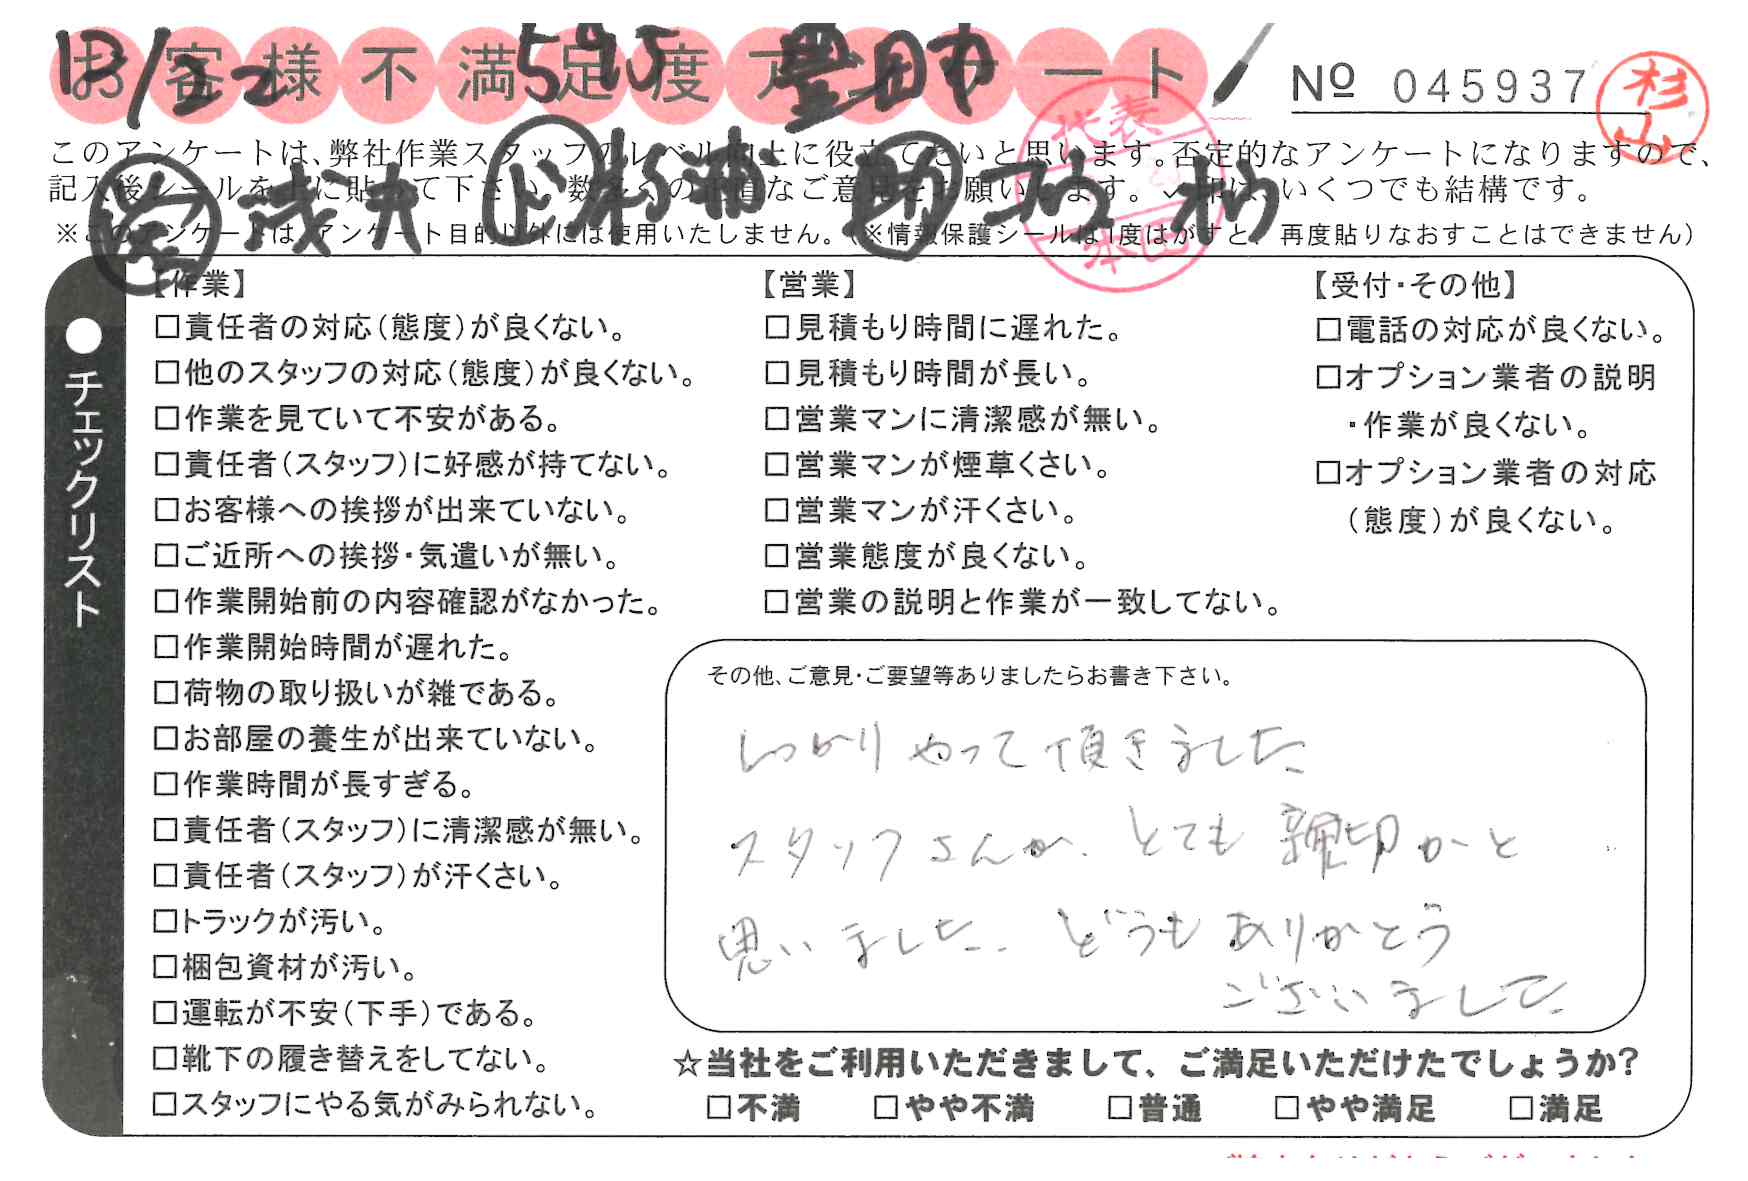 お客様不満足度アンケート
12/22 595 豊田市
№ 045937
杉山
このアンケートは、弊社作業スタッフのレベル向上に役立てたいと思います。否定的なアンケートになりますので、
記入後シールを上に貼って下さい。数多くの正直なご意見をお願いします。✓印は、いくつでも結構です。
※このアンケートは、アンケート目的以外には使用いたしません。(※情報保護シールは1度はがすと、再度貼りなおすことはできません)
代表
本田
チェックリスト
【作業】
□責任者の対応(態度)が良くない。
□他のスタッフの対応(態度)が良くない。
□作業を見ていて不安がある。
□責任者(スタッフ)に好感が持てない。
□お客様への挨拶が出来ていない。
□ご近所への挨拶・気遣いが無い。
□作業開始前の内容確認がなかった。
□作業開始時間が遅れた。
□荷物の取り扱いが雑である。
□お部屋の養生が出来ていない。
□作業時間が長すぎる。
□責任者(スタッフ)に清潔感が無い。
□責任者(スタッフ)が汗くさい。
□トラックが汚い。
□梱包資材が汚い。
□運転が不安(下手)である。
□靴下の履き替えをしてない。
□スタッフにやる気がみられない。
【営業】
□見積もり時間に遅れた。
□見積もり時間が長い。
□営業マンに清潔感が無い。
□営業マンが煙草くさい。
□営業マンが汗くさい。
□営業態度が良くない。
□営業の説明と作業が一致してない。
【受付・その他】
□電話の対応が良くない。
□オプション業者の説明
・作業が良くない。
□オプション業者の対応
(態度)が良くない。
その他、ご意見・ご要望等ありましたらお書き下さい。
しっかりやって頂きました
スタッフさんが、とても親切かと
思いました。どうもありがとう
ございました。
☆当社をご利用いただきまして、ご満足いただけたでしょうか?
□不満 □やや不満 □普通 □やや満足 □満足